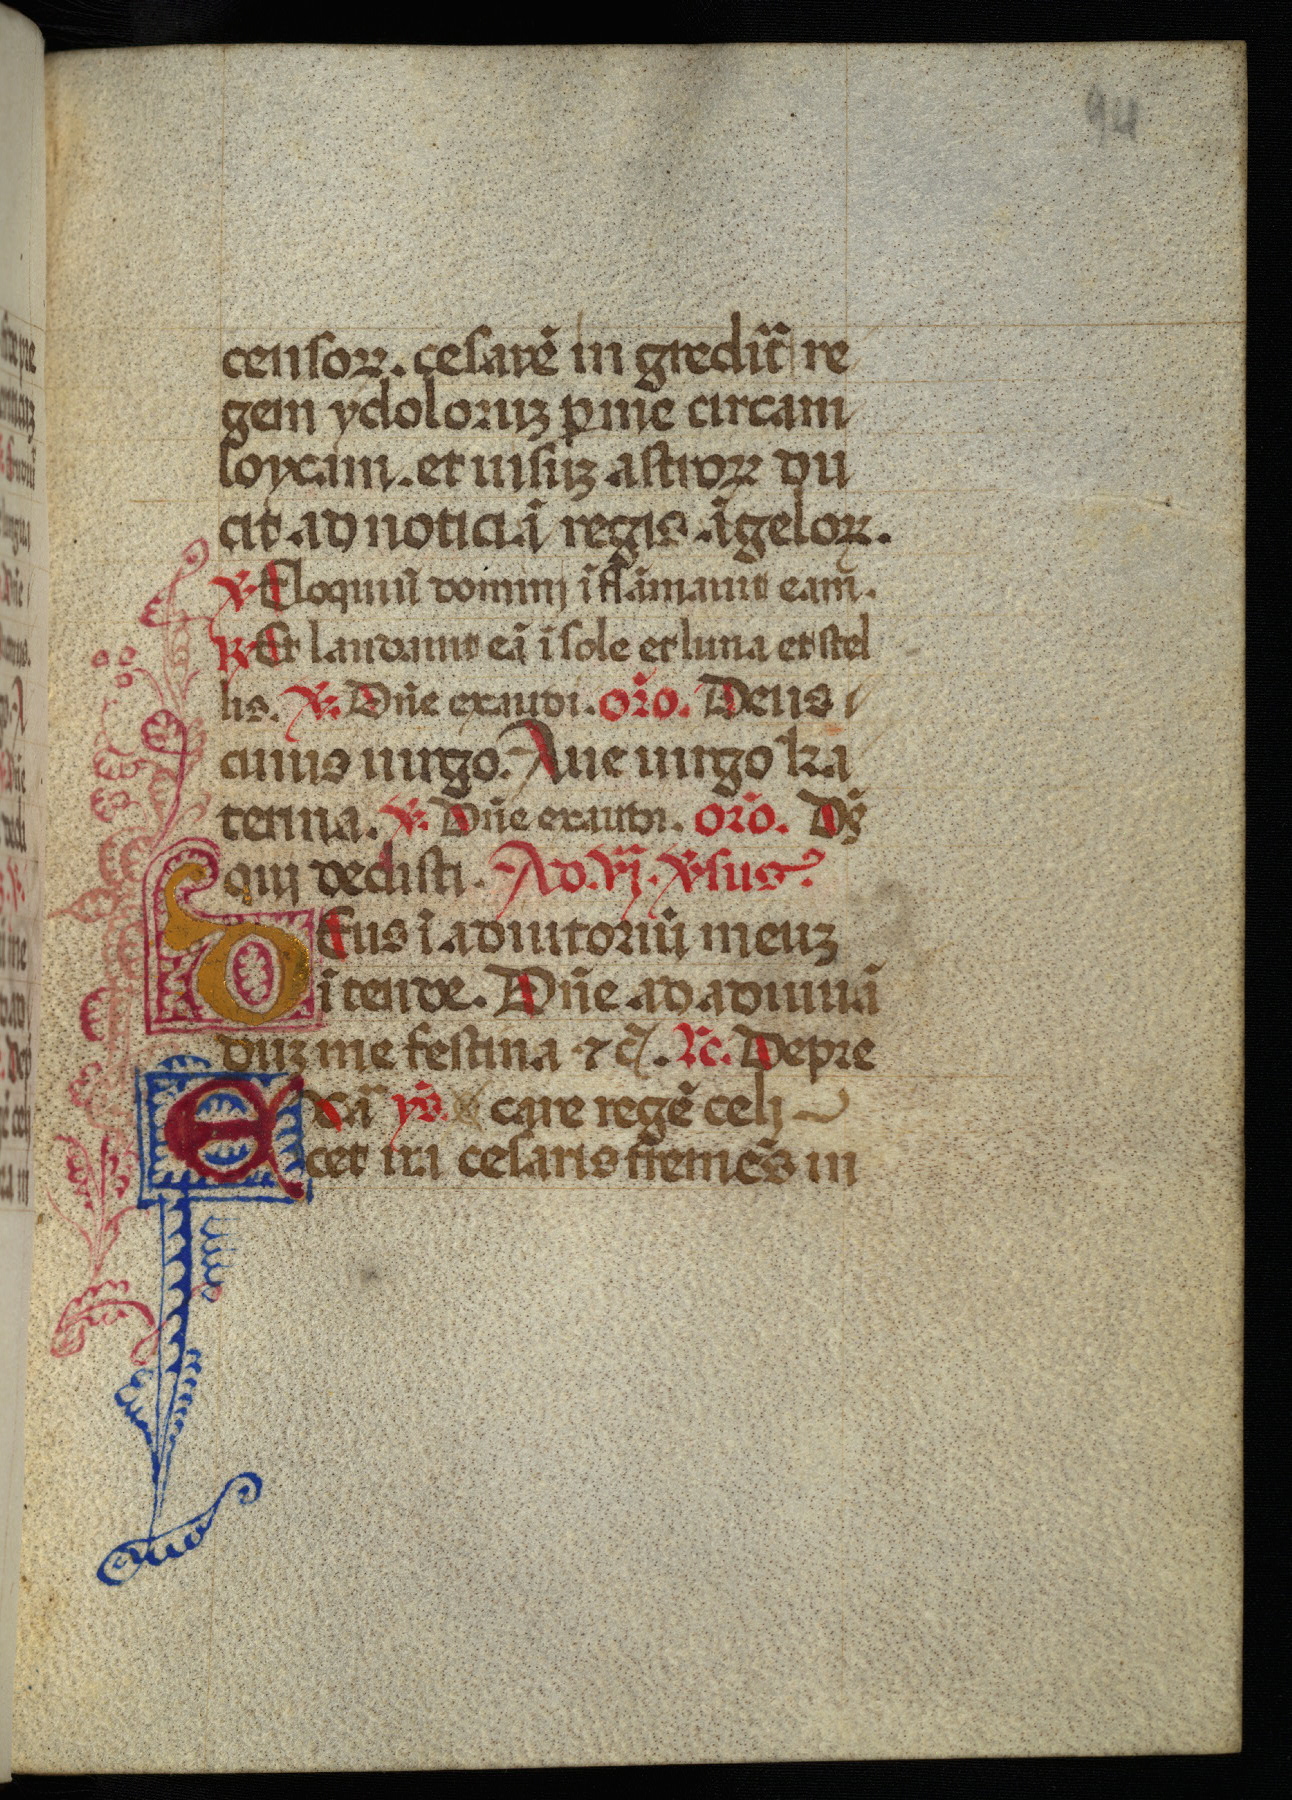 94
censoꝝ. cesarē in gredit᷑ re
gem ydoloruꝫ ꝑ me circam
loycam. et uisuꝫ astroꝝ du
cit ad noticiā regis āgeloꝝ.
℣. Eloquiū dominj īflāmauit eam.
℟. Et laudauit eā ī sole et luna et stel
lis. ℣. Dn̄e exaudi. or̄o. Deus
cuius uirgo. Aue uirgo ka
terina. ℣. Dn̄e exaudi. or̄o. Ds̄
qui dedisti. Ad. vj. ℣sus.
Deus ī adiutoriū meuꝫ
ītende. Dn̄e ad adiuuā
duꝫ me festina ⁊ c̄. Rc. Depre
caā yō. care regē celj
Licet ira cesaris fremēs in